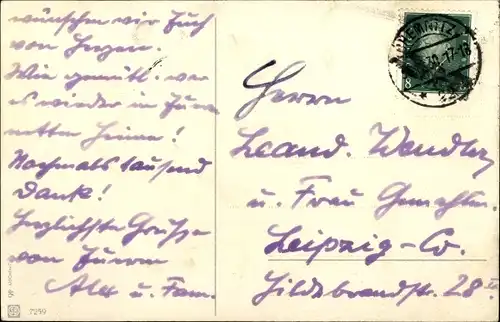 wünschen wir Euch
von Herzen.
Wie gemütl. war
es wieder in Eurem
netten Heim!
Nochmals tausend
Dank!
Herzlichste Grüsse
von Euren
Alex u. Fam.
CHEMNITZ
17-18
Herrn
Leand. Wendler
u. Frau Gemahlin.
Leipzig-Co.
Hildebrandstr. 28 II
7259